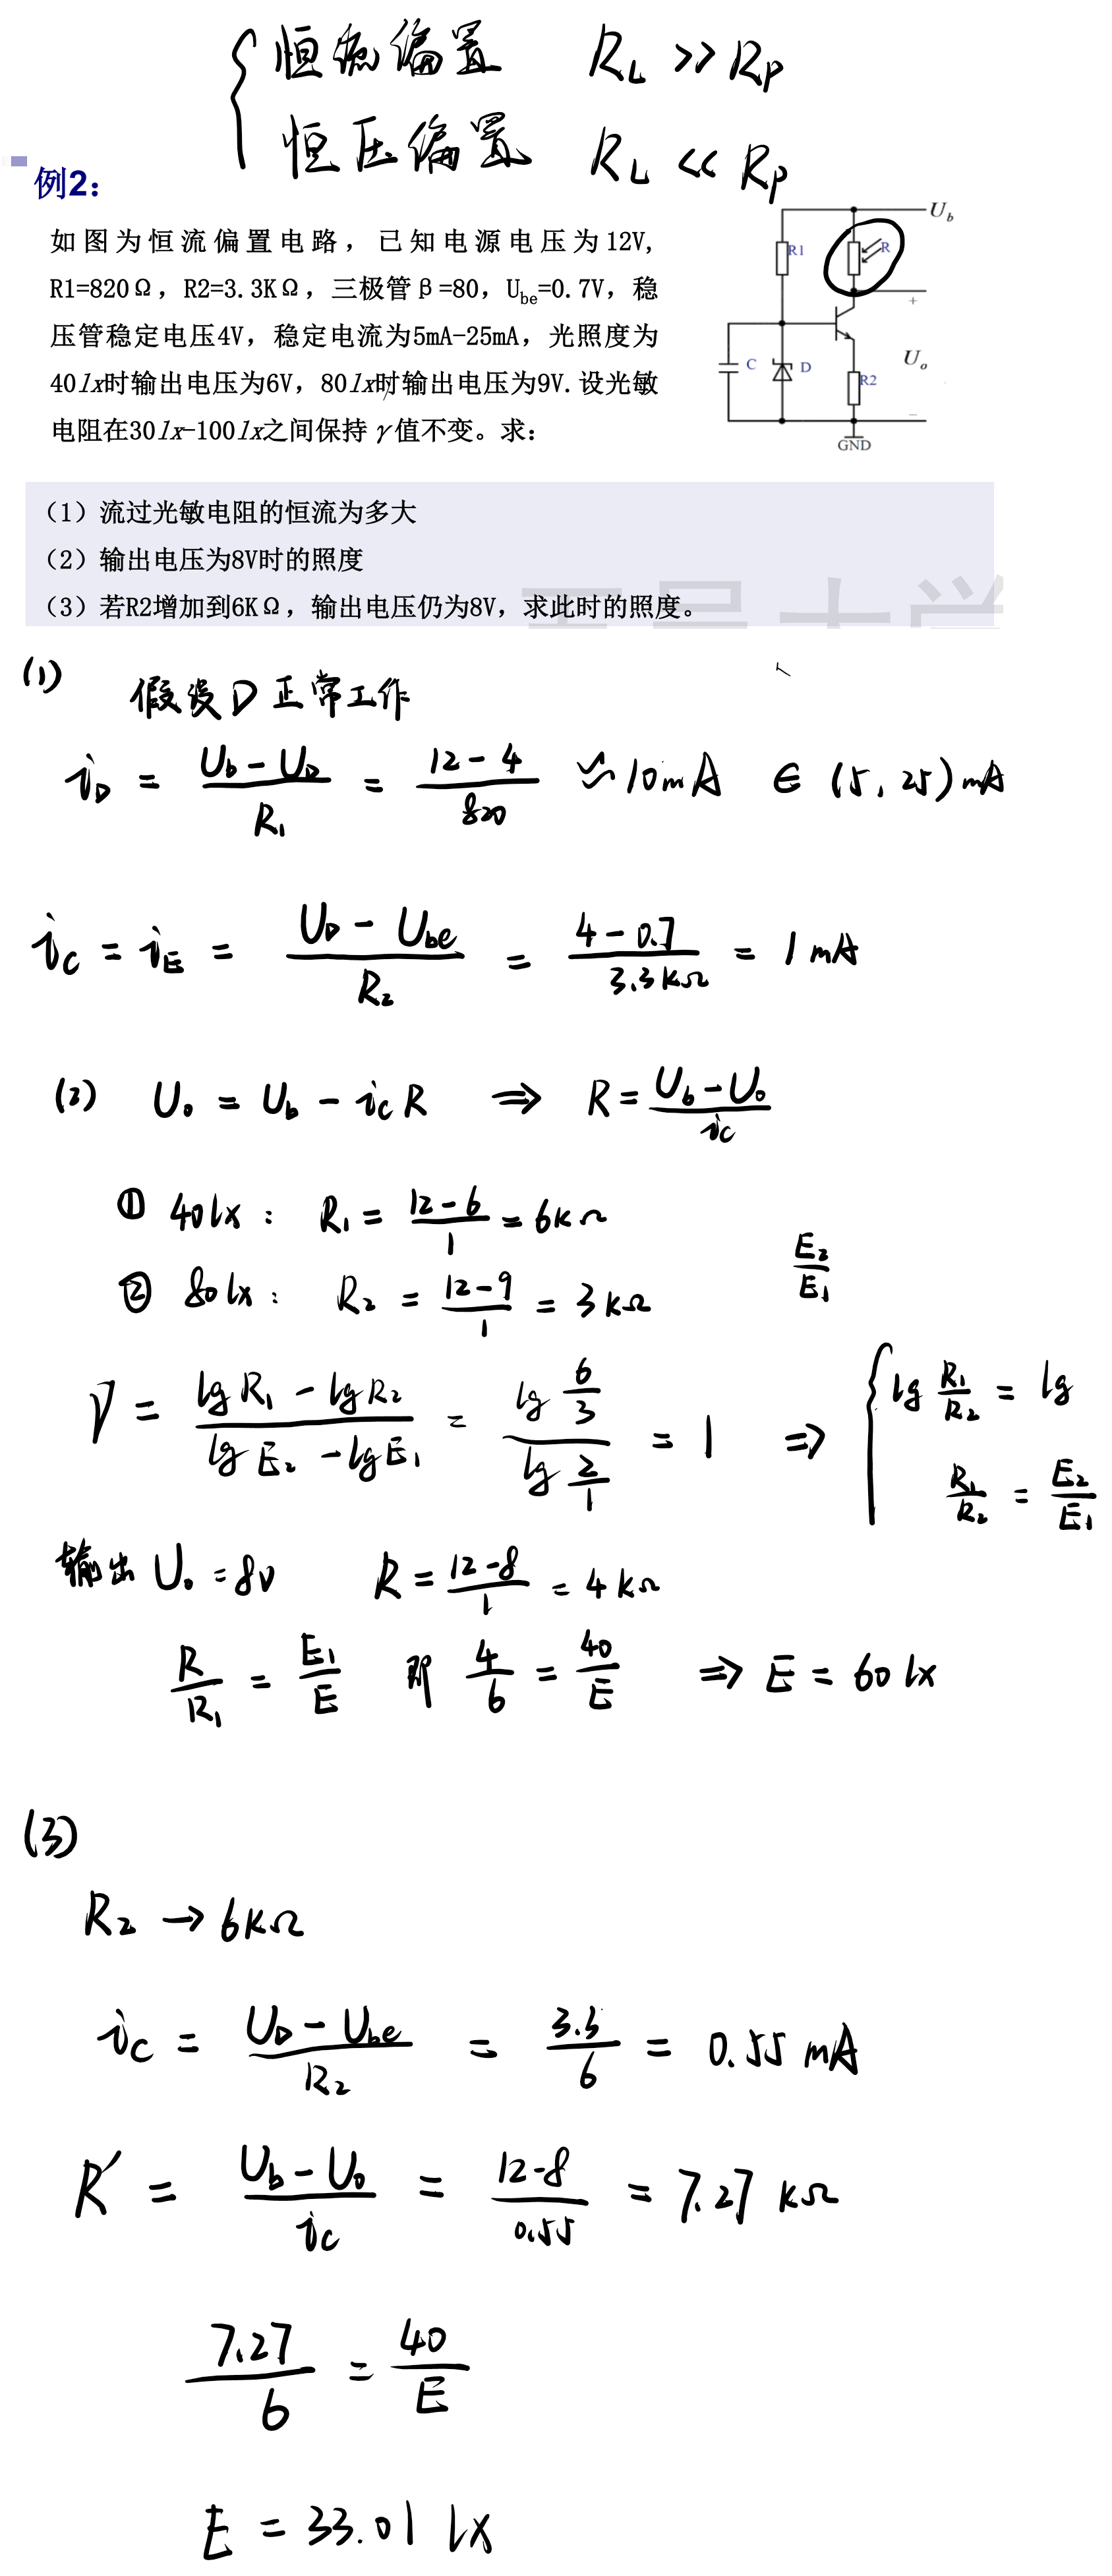 恒流偏置 R_L >> R_P
恒压偏置 R_L << R_P
例2：
如图为恒流偏置电路，已知电源电压为12V,
R1=820Ω，R2=3.3KΩ，三极管β=80，U_be=0.7V，稳
压管稳定电压4V，稳定电流为5mA-25mA，光照度为
40lx时输出电压为6V，80lx时输出电压为9V.设光敏
电阻在30lx-100lx之间保持γ值不变。求：
U_b
R1
R
+
C
D
U_o
R2
−
GND
（1）流过光敏电阻的恒流为多大
（2）输出电压为8V时的照度
（3）若R2增加到6KΩ，输出电压仍为8V，求此时的照度。
(1) 假设D正常工作
i_D = (U_b - U_D)/R_1 = (12-4)/820 ≈ 10mA ∈ (5, 25) mA
i_C = i_E = (U_D - U_be)/R_2 = (4-0.7)/3.3kΩ = 1 mA
(2) U_o = U_b - i_C R ⇒ R = (U_b - U_o)/i_C
① 40lx： R_1 = (12-6)/1 = 6kΩ
E_2/E_1
② 80lx： R_2 = (12-9)/1 = 3kΩ
γ = (lgR_1 - lgR_2)/(lgE_2 - lgE_1) = (lg 6/3)/(lg 2/1) = 1 ⇒ { lg R_1/R_2 = lg
R_1/R_2 = E_2/E_1
输出 U_o = 8V R = (12-8)/1 = 4kΩ
R/R_1 = E_1/E 即 4/6 = 40/E ⇒ E = 60 lx
(3)
R_2 → 6kΩ
i_C = (U_D - U_be)/R_2 = 3.3/6 = 0.55 mA
R′ = (U_b - U_o)/i_C = (12-8)/0.55 = 7.27 kΩ
7.27/6 = 40/E
E = 33.01 lx